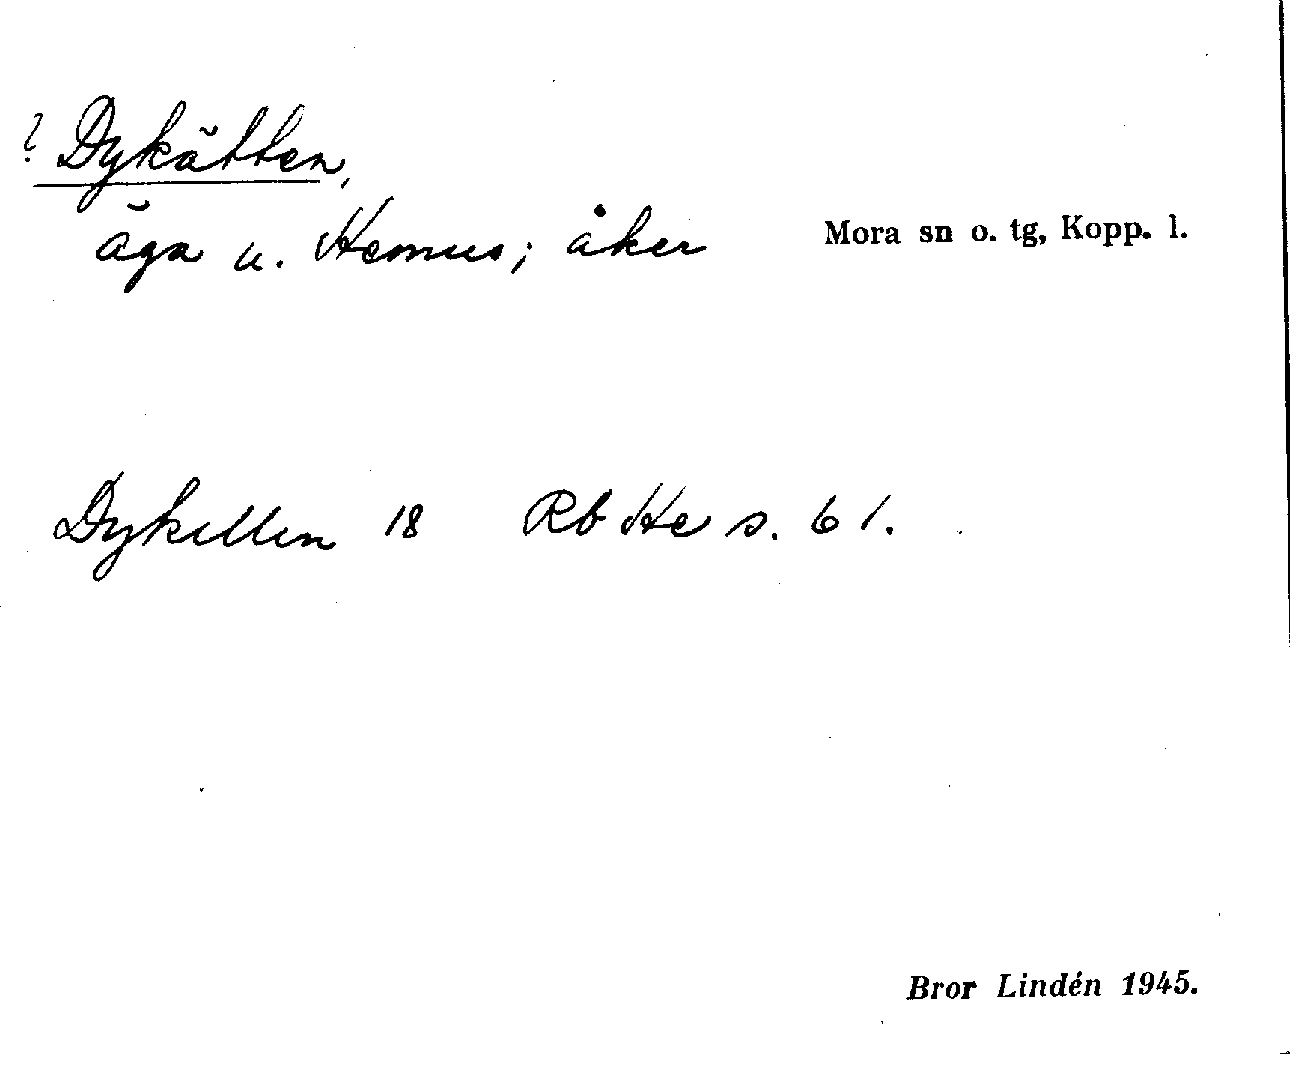 ? Dykätten,
äga u. Hemus; åker
Mora sn o. tg, Kopp. l.
Dykillen 18 Rb He s. 61.
Bror Lindén 1945.